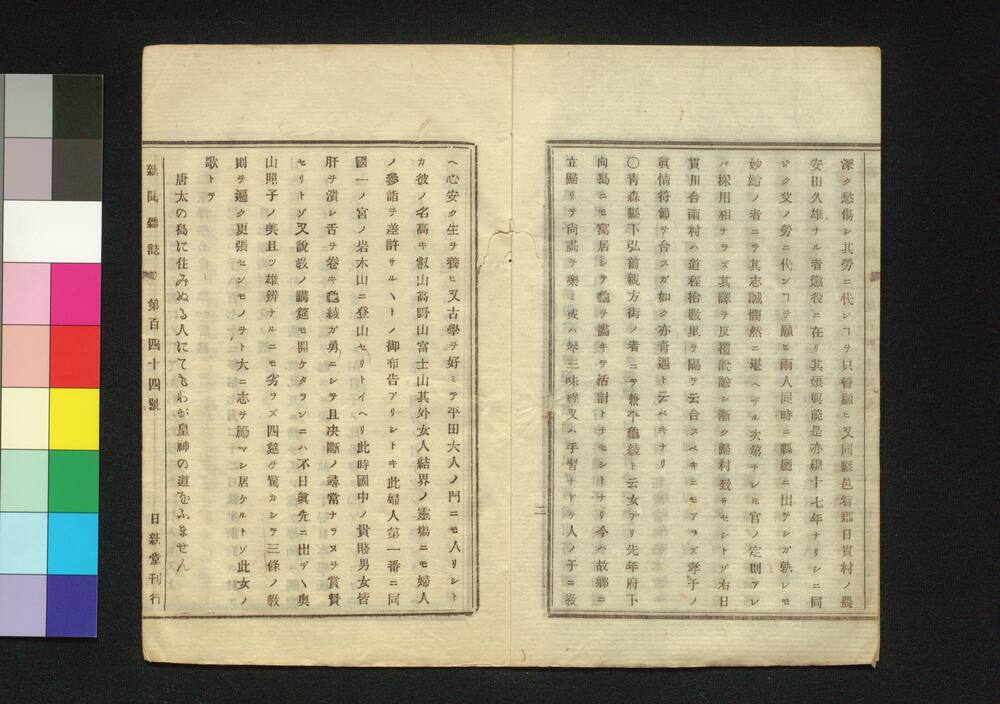 深ク愁傷シ其勞ニ代ンヿヲ只管願ヒ又同縣邑智郡日貫村ノ農
安田久雄ナル者懲役ニ在リ其娘與能是亦穉十七年ナリシニ同
シク父ノ勞ニ代ンヿヲ願ヒ兩人同時ニ縣廳ニ出デシガ孰レモ
妙齡ノ者ニテ其志誠憫然ニ堪ヘザル次第ナレ𪜈官ノ定則アレ
バ採用相ナラズ其譯ヲ反覆說諭シ漸ク歸村致サセシトゾ右日
貫川合兩村ハ道程拾數里ヲ隔テ云合スベキニモアラズ孝子ノ
眞情符節ヲ合スガ如ク亦奇遇ト云ベキナリ
〇青森縣下弘前親方街ノ者ニテ兼平龜綾ト云女アリ先年府下
向島ニモ寓居シテ龜ヲ畵キテ活計トナセシトナリ今ハ故鄕ニ
立歸リテ尙畵ヲ樂ミ或ハ琴三味線又ハ手習ナドヲ人ノ子ニ敎
ヘ心安ク生ヲ養ヒ又古學ヲ好ミテ平田大人ノ門ニモ入リシト
カ彼ノ名高キ叡山高野山富士山其外女人結界ノ靈場ニモ婦人
ノ參詣ヲ差許サルヽトノ御布告アリシトキ此婦人第一番ニ同
國一ノ宮ノ岩木山ニ登山セリトイヘリ此時國中ノ貴賤男女皆
肝ヲ潰シ舌ヲ卷キ龜綾ガ勇ニシテ且决斷ノ尋常ナラヌヲ賞贊
セリトゾ又說敎ノ講筵モ開ケタランニハ不日眞先ニ出デヽ奥
山照子ノ美且ツ雄辨ナルニモ劣ラズ四筵ヲ驚カシテ三條ノ敎
則ヲ遍ク更張センモノヲト大ニ志ヲ勵マシ居ケルトゾ此女ノ
歌トテ
唐太の島に住みぬる人にてもわが皇神の道をふません
新聞雜誌 第百四十四號 日新堂刊行
二